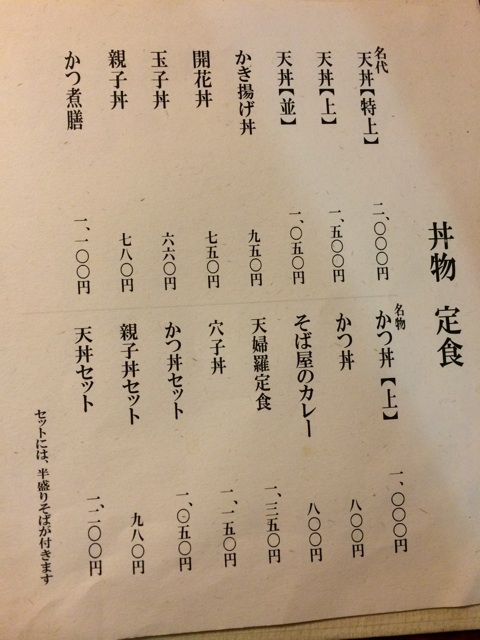 丼物 定食
名代
天丼【特上】 二、〇〇〇円
天丼【上】 一、五〇〇円
天丼【並】 一、〇五〇円
かき揚げ丼 九五〇円
開花丼 七五〇円
玉子丼 六六〇円
親子丼 七八〇円
かつ煮膳 一、一〇〇円
名物
かつ丼【上】 一、〇〇〇円
かつ丼 八〇〇円
そば屋のカレー 八〇〇円
天婦羅定食 一、三五〇円
穴子丼 一、一五〇円
かつ丼セット 一、〇五〇円
親子丼セット 九八〇円
天丼セット 一、二〇〇円
セットには、半盛りそばが付きます